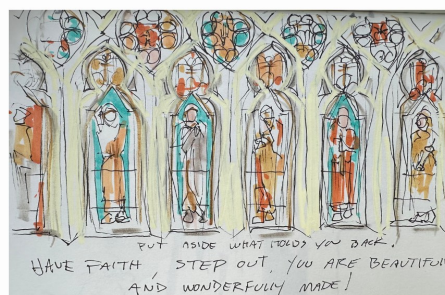 PUT ASIDE WHAT HOLDS YOU BACK.
HAVE FAITH, STEP OUT, YOU ARE BEAUTIFUL
AND WONDERFULLY MADE!